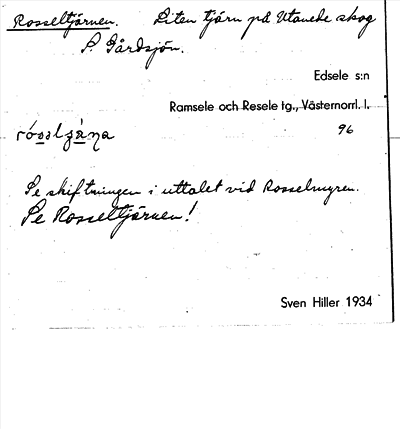 Rosseltjärnen. Liten tjärn på Utanede skog
S. Gårdsjön.
Edsele s:n
Ramsele och Resele tg., Västernorrl. l.
96
Se skiftningen i uttalet vid Rosselmyren.
Se Rosseltjärnen!
Sven Hiller 1934